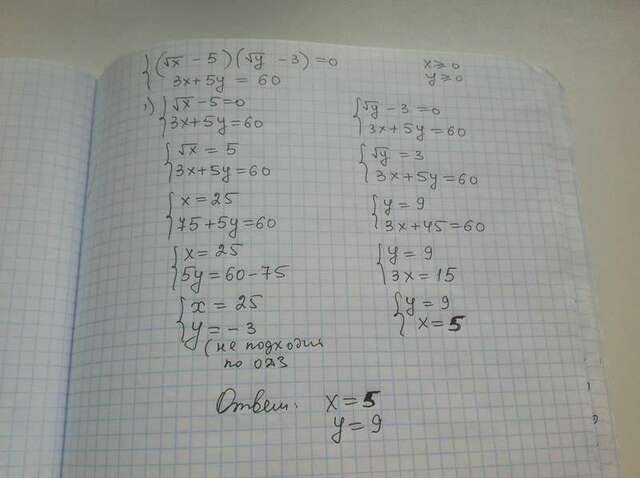 {(√x - 5)(√y - 3) = 0
3x + 5y = 60
x ≥ 0
y ≥ 0
1) {√x - 5 = 0
3x + 5y = 60
{√x = 5
3x + 5y = 60
{x = 25
75 + 5y = 60
{x = 25
5y = 60 - 75
{x = 25
y = -3
(не подходит
по ОДЗ
{√y - 3 = 0
3x + 5y = 60
{√y = 3
3x + 5y = 60
{y = 9
3x + 45 = 60
{y = 9
3x = 15
{y = 9
x = 5
Ответ: x = 5
y = 9